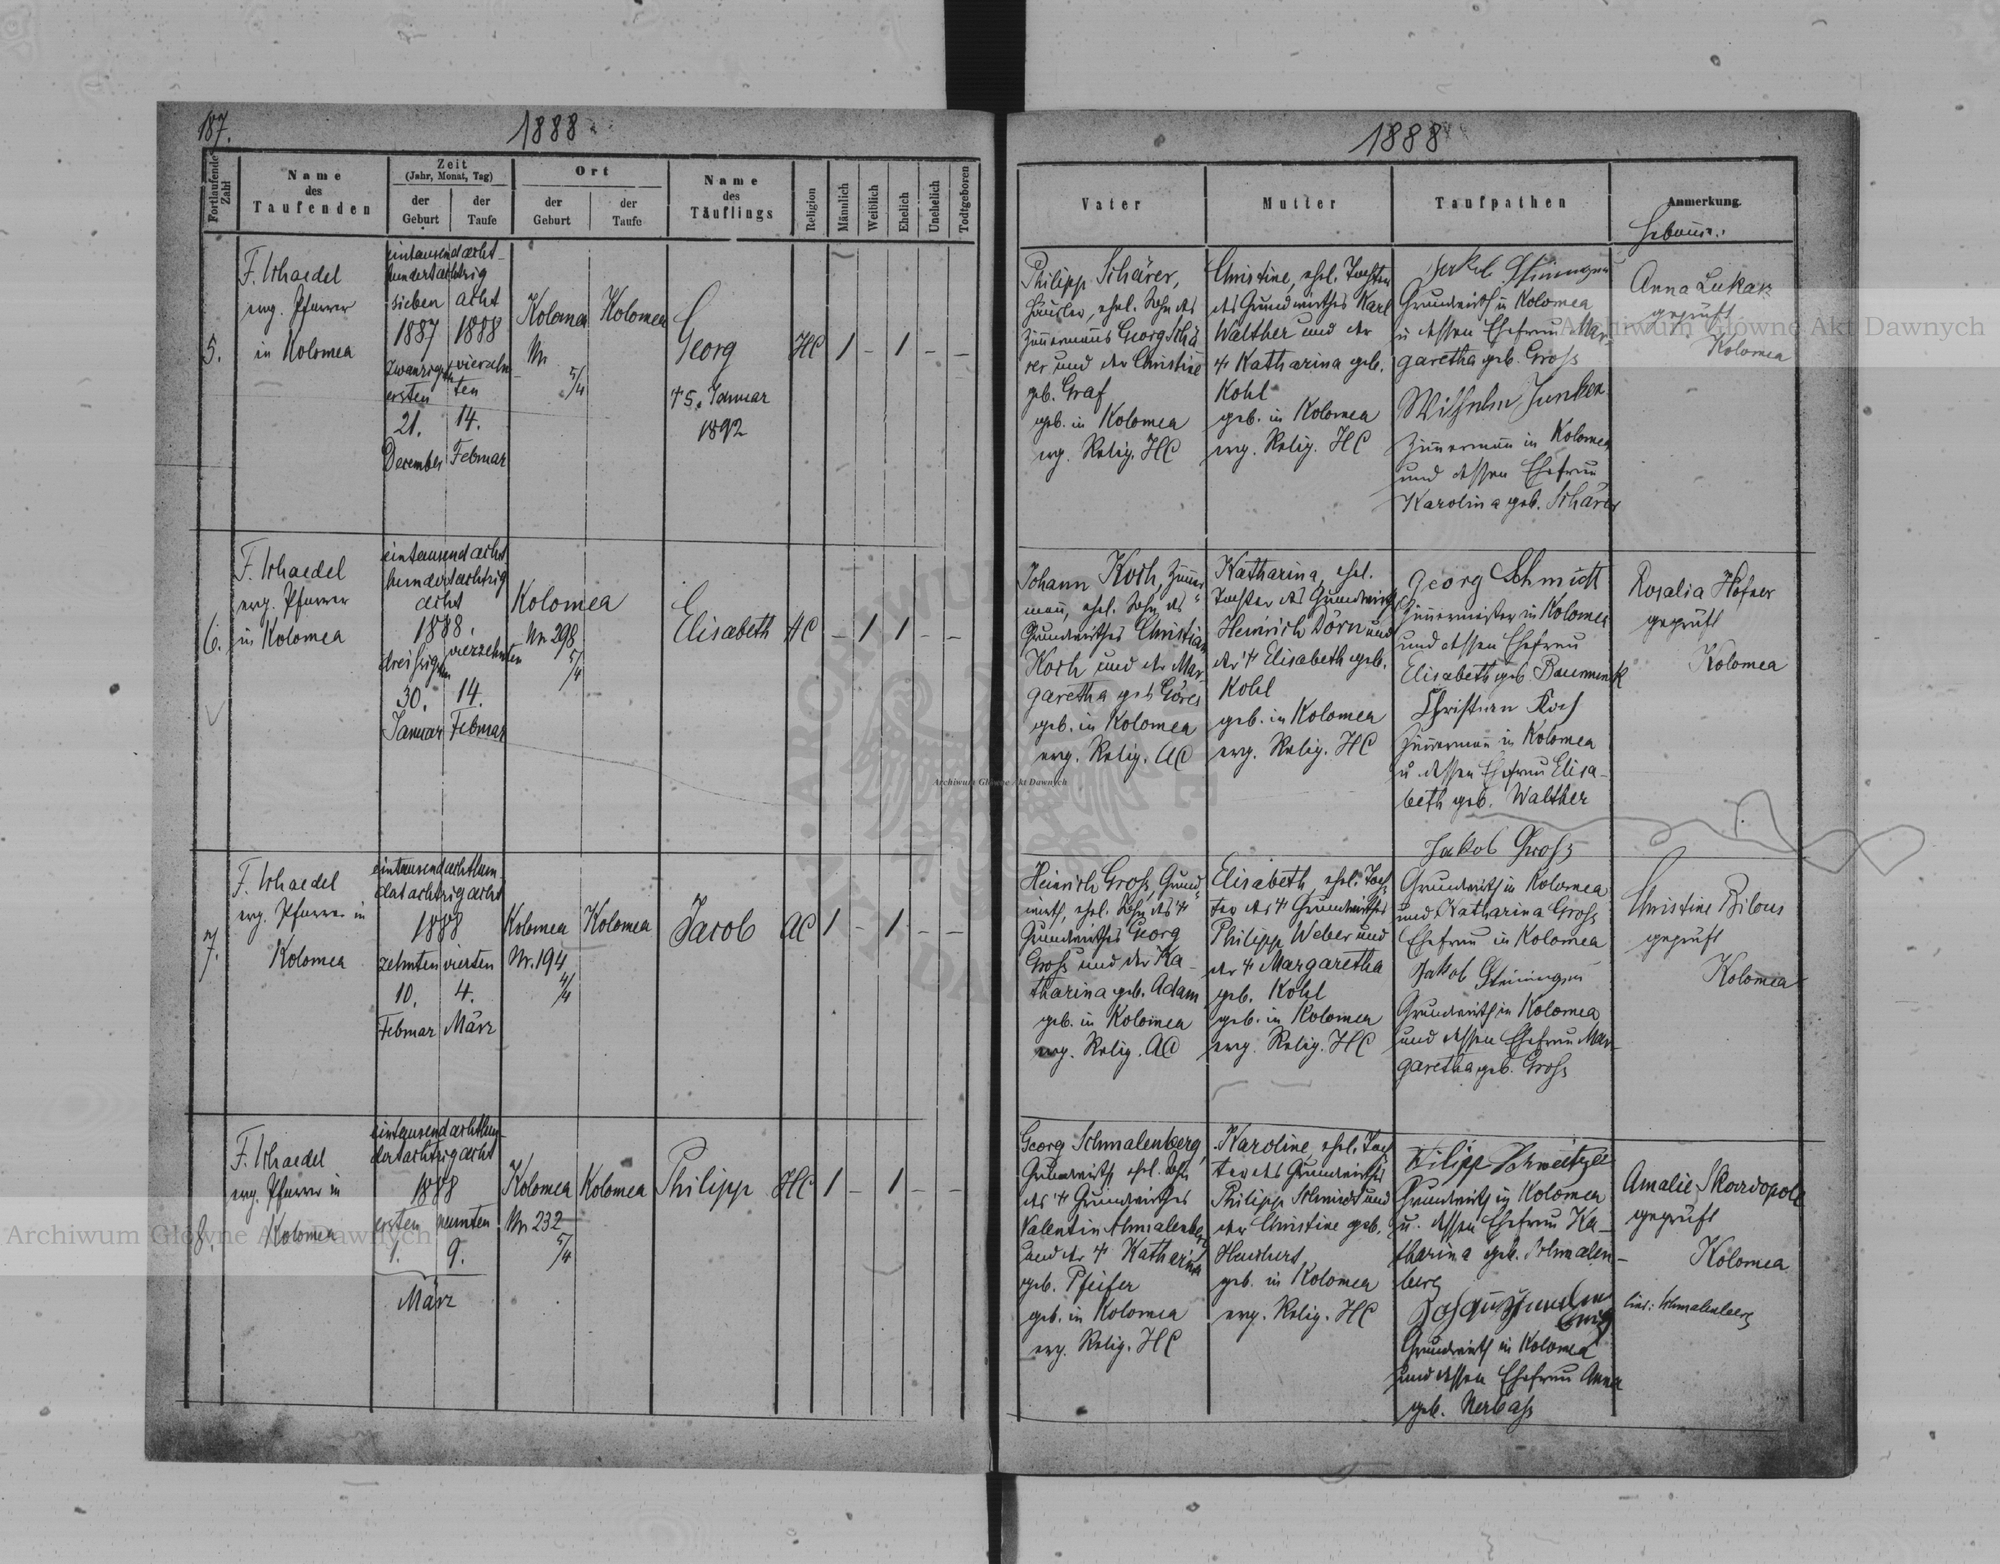 187.
1888
Fortlaufende Zahl
Name
des
Taufenden
Zeit
(Jahr, Monat, Tag)
der
Geburt
der
Taufe
Ort
der
Geburt
der
Taufe
Name
des
Täuflings
Religion
Männlich
Weiblich
Ehelich
Unehelich
Todtgeboren
1888
Vater
Mutter
Taufpathen
Anmerkung.
5.
F. Schaedel
evg. Pfarrer
in Kolomea
eintausend acht-
hundert achtzig
sieben acht
1887 1888
zwanzigsten vierzehn-
ersten ten
21. 14.
December Februar
Kolomea
Nr.
5/4
Kolomea
Georg
† 5. Januar
1892
HC 1 – 1 – –
Philipp Schärer,
Häusler, ehel. Sohn des
Zimmermanns Georg Schä
rer und der Christine
geb. Graf
geb. in Kolomea
evg. Relig. HC
Christine, ehel. Tochter
des Grundwirthes Karl
Walther und der
† Katharina geb.
Kohl
geb. in Kolomea
evg. Relig. HC
Grundwirth in Kolomea
u dessen Ehefrau Mar-
garetha geb. Gross
Wilhelm Junker
Zimmermann in Kolomea
und dessen Ehefrau
Karolina geb. Schärer
Anna Lukasz
geprüft
Kolomea
6.
F. Schaedel
evg. Pfarrer
in Kolomea
eintausend acht
hundert achtzig
acht
1888.
dreisigsten vierzehnten
30. 14.
Januar Februar
Kolomea
Nr. 298
5/4
Elisabeth
AC – 1 1 – –
Johann Koch, Zimmer-
mann, ehel. Sohn des
Grundwirthes Christian
Koch und der Mar-
garetha geb. Göres
geb. in Kolomea
evg. Relig. AC
Katharina, ehel.
Tochter des Grundwirth
Heinrich Dörn und
der † Elisabeth geb.
Kohl
geb. in Kolomea
evg. Relig. HC
Georg Schmidt
Zimmermeister in Kolomea
und dessen Ehefrau
Elisabeth geb.
Christian Koch
Zimmermann in Kolomea
u. dessen Ehefrau Elisa-
beth geb. Walther
Rosalia Hofner
geprüft
Kolomea
7.
F. Schaedel
evg. Pfarrer in
Kolomea
eintausend achthun-
dert achtzig acht
1888
zehnten vierten
10. 4.
Februar März
Kolomea
Nr. 194
4/4
Kolomea
Jacob
AC 1 – 1 – –
Heinrich Gross, Grund-
wirth, ehel. Sohn des †
Grundwirthes Georg
Gross und der Ka-
tharina geb. Adam
geb. in Kolomea
evg. Relig. AC
Elisabeth, ehel. Toch-
ter des † Grundwirthes
Philipp Weber und
der † Margaretha
geb. Kohl
geb. in Kolomea
evg. Relig. HC
Jakob Gross
Grundwirth in Kolomea
und Katharina Gross
Ehefrau in Kolomea
Jakob Steininger
Grundwirth in Kolomea
und dessen Ehefrau Mar-
garetha geb. Gross
Christine Bilous
geprüft
Kolomea
8.
F. Schaedel
evg. Pfarrer in
Kolomea
eintausend achthun-
dert achtzig acht
1888
ersten neunten
1. 9.
März
Kolomea
Nr. 232
5/4
Kolomea
Philipp
HC 1 – 1 – –
Georg Schmalenberg,
Grundwirth, ehel. Sohn
des † Grundwirthes
Valentin Schmalenberg
und der † Katharina
geb. Pfeifer
geb. in Kolomea
evg. Relig. HC
Karoline, ehel. Toch
ter des Grundwirthes
Philipp Schmidt und
der Christine geb.
geb. in Kolomea
evg. Relig. HC
Filipp Schweitzer
Grundwirth in Kolomea
u. dessen Ehefrau Ka-
tharina geb. Schmalen-
berg
Grundwirth in Kolomea
und dessen Ehefrau Anna
geb. Nerbass
geprüft
Kolomea
Archiwum Główne Akt Dawnych
Archiwum Główne Akt Dawnych
Archiwum Główne Akt Dawnych